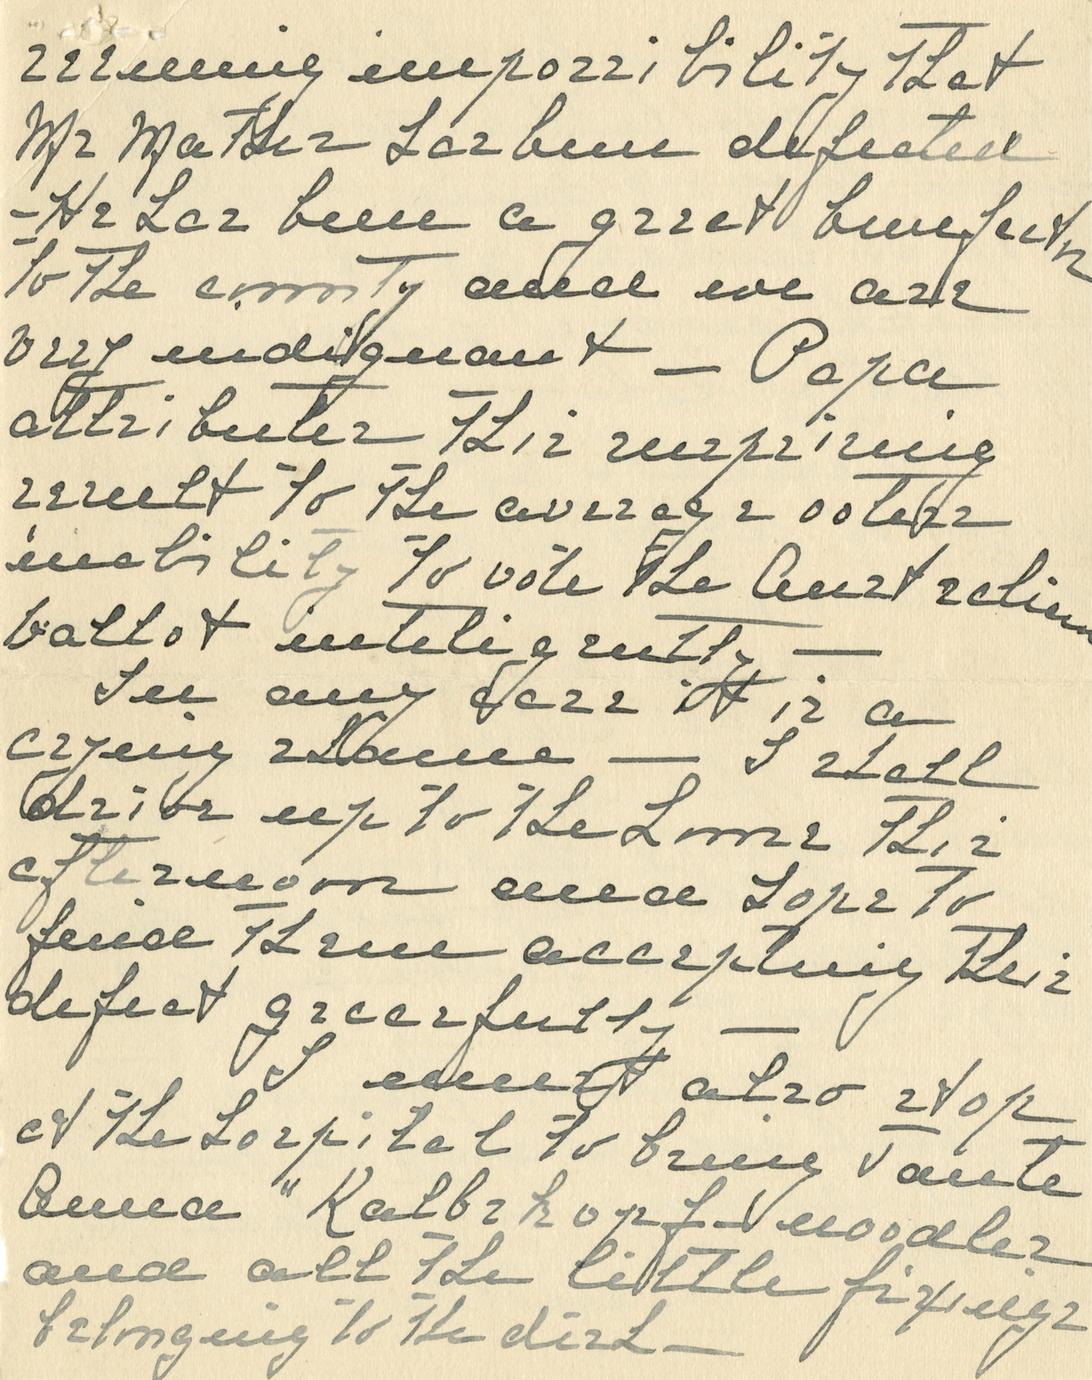 seeming impossibility that
Mr Mather has been defeated
- He has been a great benefactor
to the county and we are
very indignant — Papa
attributes this surprising
result to the average voters
inability to vote the Australian
ballot inteligently —
In any case it is a
crying shame — I shall
drive up to the house this
afternoon and hope to
find them accepting their
defeat gracefully —
I must also stop
at the hospital to bring Tante
Anna "Kalbskopf - noodles
and all the little fixings
belonging to the dish —